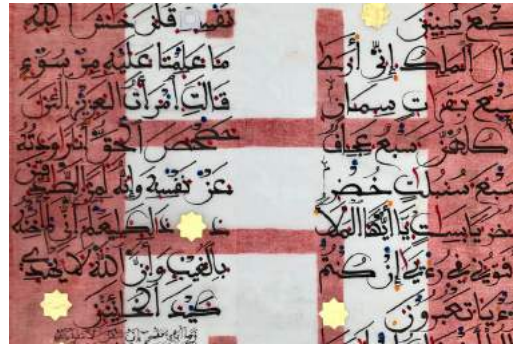 بضع سنين
قال الملك إني أرى
سبع بقرات سمان
يأكلهن سبع عجاف
سبع سنبلت خضر
يابست يا أيها الملأ
إن كنتم
تعبرون
نفسه قلن حش لله
ما علمنا عليه من سوء
قالت امرأت العزيز الن
حصحص الحق أنا رودته
عن نفسه وإنه لمن الصدقين
ذلك ليعلم أني لم أخنه
بالغيب وأن الله لا يهدي
كيد الخئنين